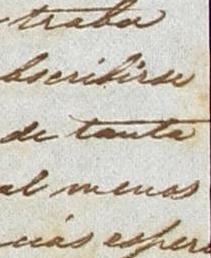 traba
bscribirse
de tanta
al menos
cias espero